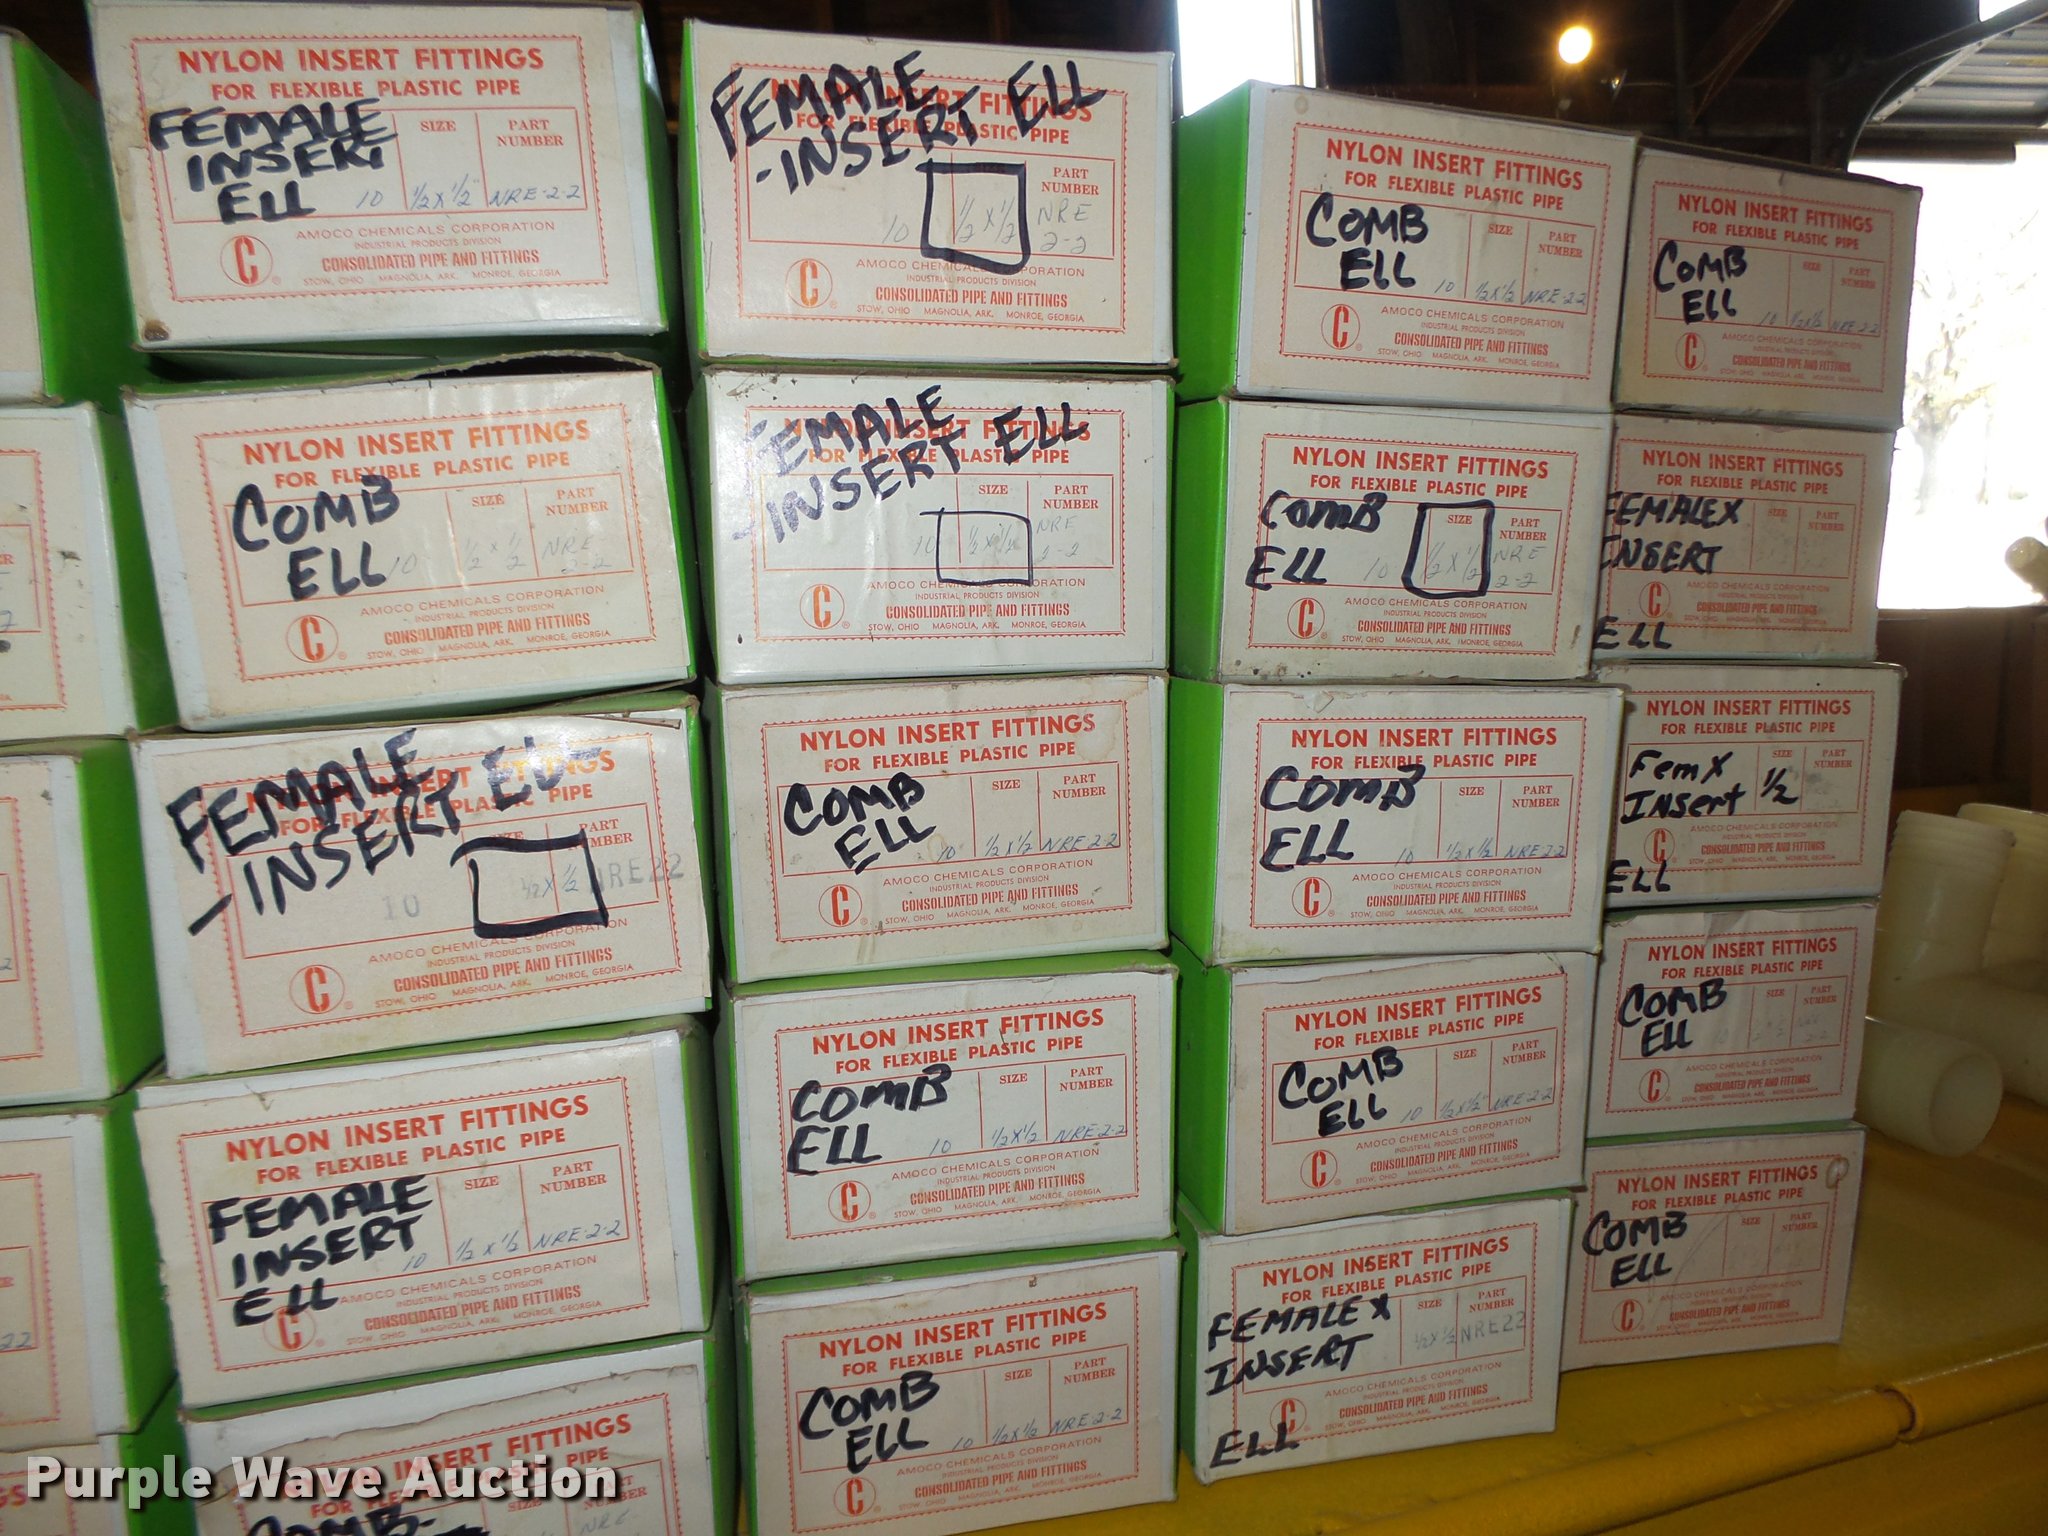 NYLON INSERT FITTINGS
FOR FLEXIBLE PLASTIC PIPE
FEMALE
INSERT
ELL
SIZE
PART
NUMBER
10 1/2 X 1/2" NRE-2-2
AMOCO CHEMICALS CORPORATION
INDUSTRIAL PRODUCTS DIVISION
C ® CONSOLIDATED PIPE AND FITTINGS
STOW, OHIO MAGNOLIA, ARK. MONROE, GEORGIA
NYLON INSERT FITTINGS
FOR FLEXIBLE PLASTIC PIPE
COMB
ELL
SIZE
PART
NUMBER
10 1/2 X 1/2 NRE-
2-2
AMOCO CHEMICALS CORPORATION
INDUSTRIAL PRODUCTS DIVISION
C ® CONSOLIDATED PIPE AND FITTINGS
STOW, OHIO MAGNOLIA, ARK. MONROE, GEORGIA
NYLON INSERT FITTINGS
FOR FLEXIBLE PLASTIC PIPE
FEMALE
-INSERT ELL
SIZE
PART
NUMBER
10 1/2 X 1/2 NRE22
AMOCO CHEMICALS CORPORATION
INDUSTRIAL PRODUCTS DIVISION
C ® CONSOLIDATED PIPE AND FITTINGS
STOW, OHIO MAGNOLIA, ARK. MONROE, GEORGIA
NYLON INSERT FITTINGS
FOR FLEXIBLE PLASTIC PIPE
FEMALE
INSERT
ELL
SIZE
PART
NUMBER
10 1/2 X 1/2 NRE-2-2
AMOCO CHEMICALS CORPORATION
INDUSTRIAL PRODUCTS DIVISION
C ® CONSOLIDATED PIPE AND FITTINGS
STOW, OHIO MAGNOLIA, ARK. MONROE, GEORGIA
INSERT FITTINGS
FOR FLEXIBLE PLASTIC PIPE
COMB-
SIZE
PART
NUMBER
NRE-
NYLON INSERT FITTINGS
FOR FLEXIBLE PLASTIC PIPE
FEMALE
-INSERT ELL
PART
NUMBER
10 1/2 X 1/2 NRE
2-2
AMOCO CHEMICALS CORPORATION
INDUSTRIAL PRODUCTS DIVISION
C ® CONSOLIDATED PIPE AND FITTINGS
STOW, OHIO MAGNOLIA, ARK. MONROE, GEORGIA
INSERT FITTINGS
FOR FLEXIBLE PLASTIC PIPE
FEMALE
-INSERT ELL
SIZE
PART
NUMBER
10 1/2 X 1/2 NRE
2-2
AMOCO CHEMICALS CORPORATION
INDUSTRIAL PRODUCTS DIVISION
C ® CONSOLIDATED PIPE AND FITTINGS
STOW, OHIO MAGNOLIA, ARK. MONROE, GEORGIA
NYLON INSERT FITTINGS
FOR FLEXIBLE PLASTIC PIPE
COMB
ELL
SIZE
PART
NUMBER
10 1/2 X 1/2 NRE-2-2
AMOCO CHEMICALS CORPORATION
INDUSTRIAL PRODUCTS DIVISION
C ® CONSOLIDATED PIPE AND FITTINGS
STOW, OHIO MAGNOLIA, ARK. MONROE, GEORGIA
NYLON INSERT FITTINGS
FOR FLEXIBLE PLASTIC PIPE
COMB
ELL
SIZE
PART
NUMBER
10 1/2 X 1/2 NRE-2-2
AMOCO CHEMICALS CORPORATION
INDUSTRIAL PRODUCTS DIVISION
C ® CONSOLIDATED PIPE AND FITTINGS
STOW, OHIO MAGNOLIA, ARK. MONROE, GEORGIA
NYLON INSERT FITTINGS
FOR FLEXIBLE PLASTIC PIPE
COMB
ELL
SIZE
PART
NUMBER
10 1/2 X 1/2 NRE-2-2
AMOCO CHEMICALS CORPORATION
INDUSTRIAL PRODUCTS DIVISION
C ® CONSOLIDATED PIPE AND FITTINGS
STOW, OHIO MAGNOLIA, ARK. MONROE, GEORGIA
NYLON INSERT FITTINGS
FOR FLEXIBLE PLASTIC PIPE
COMB
ELL
SIZE
PART
NUMBER
10 1/2 X 1/2 NRE-2-2
AMOCO CHEMICALS CORPORATION
INDUSTRIAL PRODUCTS DIVISION
C ® CONSOLIDATED PIPE AND FITTINGS
STOW, OHIO MAGNOLIA, ARK. MONROE, GEORGIA
NYLON INSERT FITTINGS
FOR FLEXIBLE PLASTIC PIPE
COMB
ELL
SIZE
PART
NUMBER
10 1/2 X 1/2 NRE
2-2
AMOCO CHEMICALS CORPORATION
INDUSTRIAL PRODUCTS DIVISION
C ® CONSOLIDATED PIPE AND FITTINGS
STOW, OHIO MAGNOLIA, ARK. MONROE, GEORGIA
NYLON INSERT FITTINGS
FOR FLEXIBLE PLASTIC PIPE
COMB
ELL
SIZE
PART
NUMBER
10 1/2 X 1/2 NRE-2-2
AMOCO CHEMICALS CORPORATION
INDUSTRIAL PRODUCTS DIVISION
C ® CONSOLIDATED PIPE AND FITTINGS
STOW, OHIO MAGNOLIA, ARK. MONROE, GEORGIA
NYLON INSERT FITTINGS
FOR FLEXIBLE PLASTIC PIPE
COMB
ELL
SIZE
PART
NUMBER
10 1/2 X 1/2" NRE-2-2
AMOCO CHEMICALS CORPORATION
INDUSTRIAL PRODUCTS DIVISION
C ® CONSOLIDATED PIPE AND FITTINGS
STOW, OHIO MAGNOLIA, ARK. MONROE, GEORGIA
NYLON INSERT FITTINGS
FOR FLEXIBLE PLASTIC PIPE
FEMALE X
INSERT
ELL
SIZE
PART
NUMBER
1/2 X 1/2 NRE22
AMOCO CHEMICALS CORPORATION
INDUSTRIAL PRODUCTS DIVISION
C ® CONSOLIDATED PIPE AND FITTINGS
STOW, OHIO MAGNOLIA, ARK. MONROE, GEORGIA
NYLON INSERT FITTINGS
FOR FLEXIBLE PLASTIC PIPE
COMB
ELL
SIZE
PART
NUMBER
10 1/2 X 1/2 NRE-2-2
AMOCO CHEMICALS CORPORATION
INDUSTRIAL PRODUCTS DIVISION
C ® CONSOLIDATED PIPE AND FITTINGS
STOW, OHIO MAGNOLIA, ARK. MONROE, GEORGIA
NYLON INSERT FITTINGS
FOR FLEXIBLE PLASTIC PIPE
FEMALE X
INSERT
ELL
SIZE
PART
NUMBER
AMOCO CHEMICALS CORPORATION
INDUSTRIAL PRODUCTS DIVISION
C ® CONSOLIDATED PIPE AND FITTINGS
STOW, OHIO MAGNOLIA, ARK. MONROE, GEORGIA
NYLON INSERT FITTINGS
FOR FLEXIBLE PLASTIC PIPE
Fem X
Insert 1/2
ELL
SIZE
PART
NUMBER
AMOCO CHEMICALS CORPORATION
INDUSTRIAL PRODUCTS DIVISION
C ® CONSOLIDATED PIPE AND FITTINGS
STOW, OHIO MAGNOLIA, ARK. MONROE, GEORGIA
NYLON INSERT FITTINGS
FOR FLEXIBLE PLASTIC PIPE
COMB
ELL
SIZE
PART
NUMBER
AMOCO CHEMICALS CORPORATION
INDUSTRIAL PRODUCTS DIVISION
C ® CONSOLIDATED PIPE AND FITTINGS
STOW, OHIO MAGNOLIA, ARK. MONROE, GEORGIA
NYLON INSERT FITTINGS
FOR FLEXIBLE PLASTIC PIPE
COMB
ELL
SIZE
PART
NUMBER
AMOCO CHEMICALS CORPORATION
INDUSTRIAL PRODUCTS DIVISION
C ® CONSOLIDATED PIPE AND FITTINGS
STOW, OHIO MAGNOLIA, ARK. MONROE, GEORGIA
Purple Wave Auction